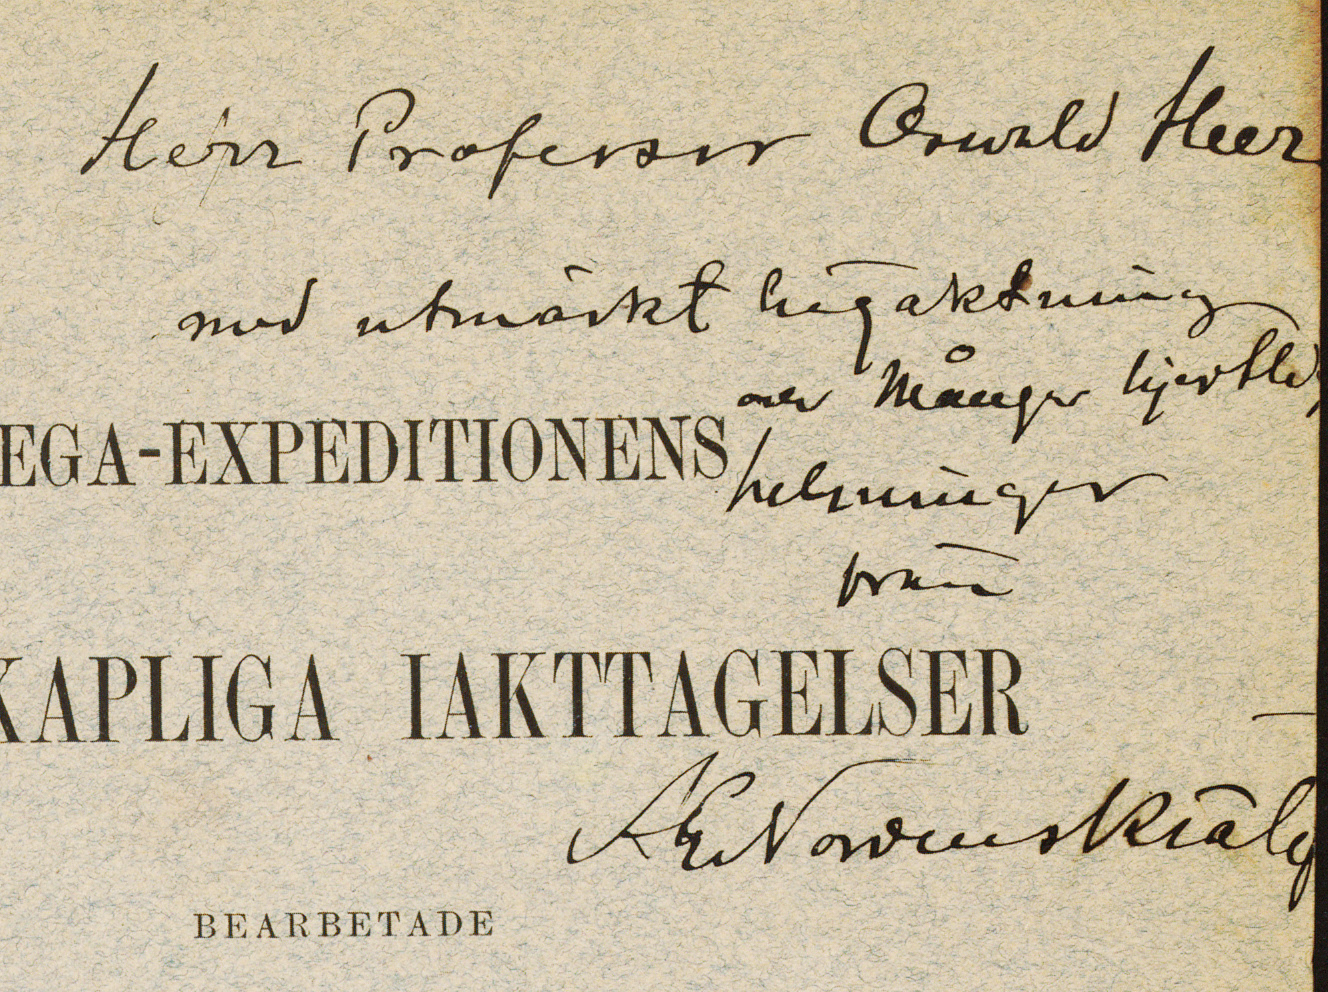 Herr Professor Oswald Heer
med utmärkt högaktning
och många hjertlig
helsningar
från
EGA-EXPEDITIONENS
KAPLIGA IAKTTAGELSER
AE Nordenskiöld
BEARBETADE